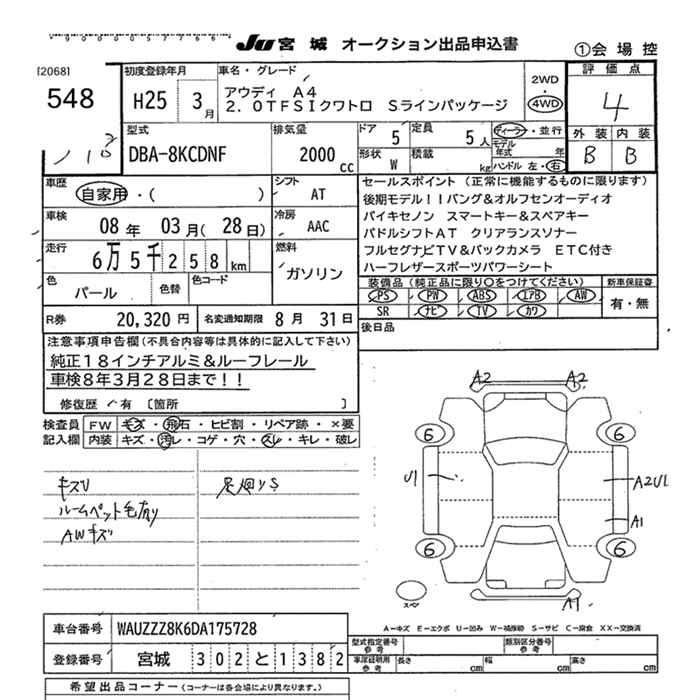 Ju 宮城 オークション出品申込書
①会場控
[2068]
548
初度登録年月
H25 3月
車名・グレード
アウディ A4
2.0TFSIクワトロ Sラインパッケージ
2WD
・
4WD
評価点
4
外装 内装
B B
型式
DBA-8KCDNF
排気量
2000cc
ドア 5
定員 5人
形状 W
積載 kg
ディーラー・並行
モデル年式 年
ハンドル 左・右
車歴
自家用・( )
シフト
AT
車検
08年 03月(28日)
冷房
AAC
走行
6万5千258km
燃料
ガソリン
色
パール
色替
色コード
R券
20,320円
名変通知期限 8月 31日
セールスポイント (正常に機能するものに限ります)
後期モデル!!バング&オルフセンオーディオ
バイキセノン スマートキー&スペアキー
パドルシフトAT クリアランスソナー
フルセグナビTV&バックカメラ ETC付き
ハーフレザースポーツパワーシート
装備品 (純正品に限り○をつけてください)
PS PW ABS エアB AW
SR ナビ TV カワ
新車保証書
有・無
後日品
注意事項申告欄(不具合内容等は具体的に記入して下さい)
純正18インチアルミ&ルーフレール
車検8年3月28日まで!!
修復歴・有 〔箇所 〕
検査員記入欄
FW キズ・飛石・ヒビ割・リペア跡・×要
内装 キズ・汚レ・コゲ・穴・スレ・キレ・破レ
キズU
足廻りS
ルームペット毛有り
AWキズ
A2 A2
6 6
U1
A2U1
A1
6 6
スペア
A1
A-キズ E-エクボ U-凹み W-補修跡 S-サビ C-腐食 XX-交換済
車台番号
WAUZZZ8K6DA175728
登録番号
宮城 302と1382
型式指定番号
参考
類別区分番号
参考
車庫証明用
参考
長さ cm
幅 cm
高さ cm
希望出品コーナー(コーナーは各会場により異なります。)